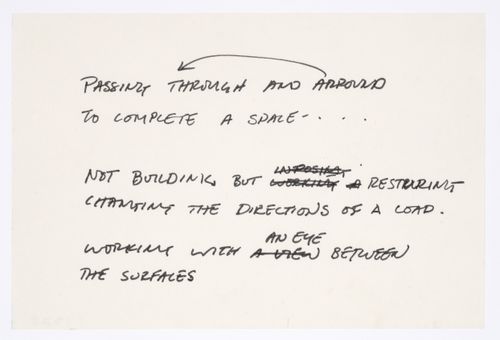 PASSING THROUGH AND ARROUND
TO COMPLETE A SPACE - . . .
NOT BUILDING BUT WORKING A RESTRURING
CHANGING THE DIRECTIONS OF A LOAD.
AN EYE
WORKING WITH A VIEW BETWEEN
THE SURFACES